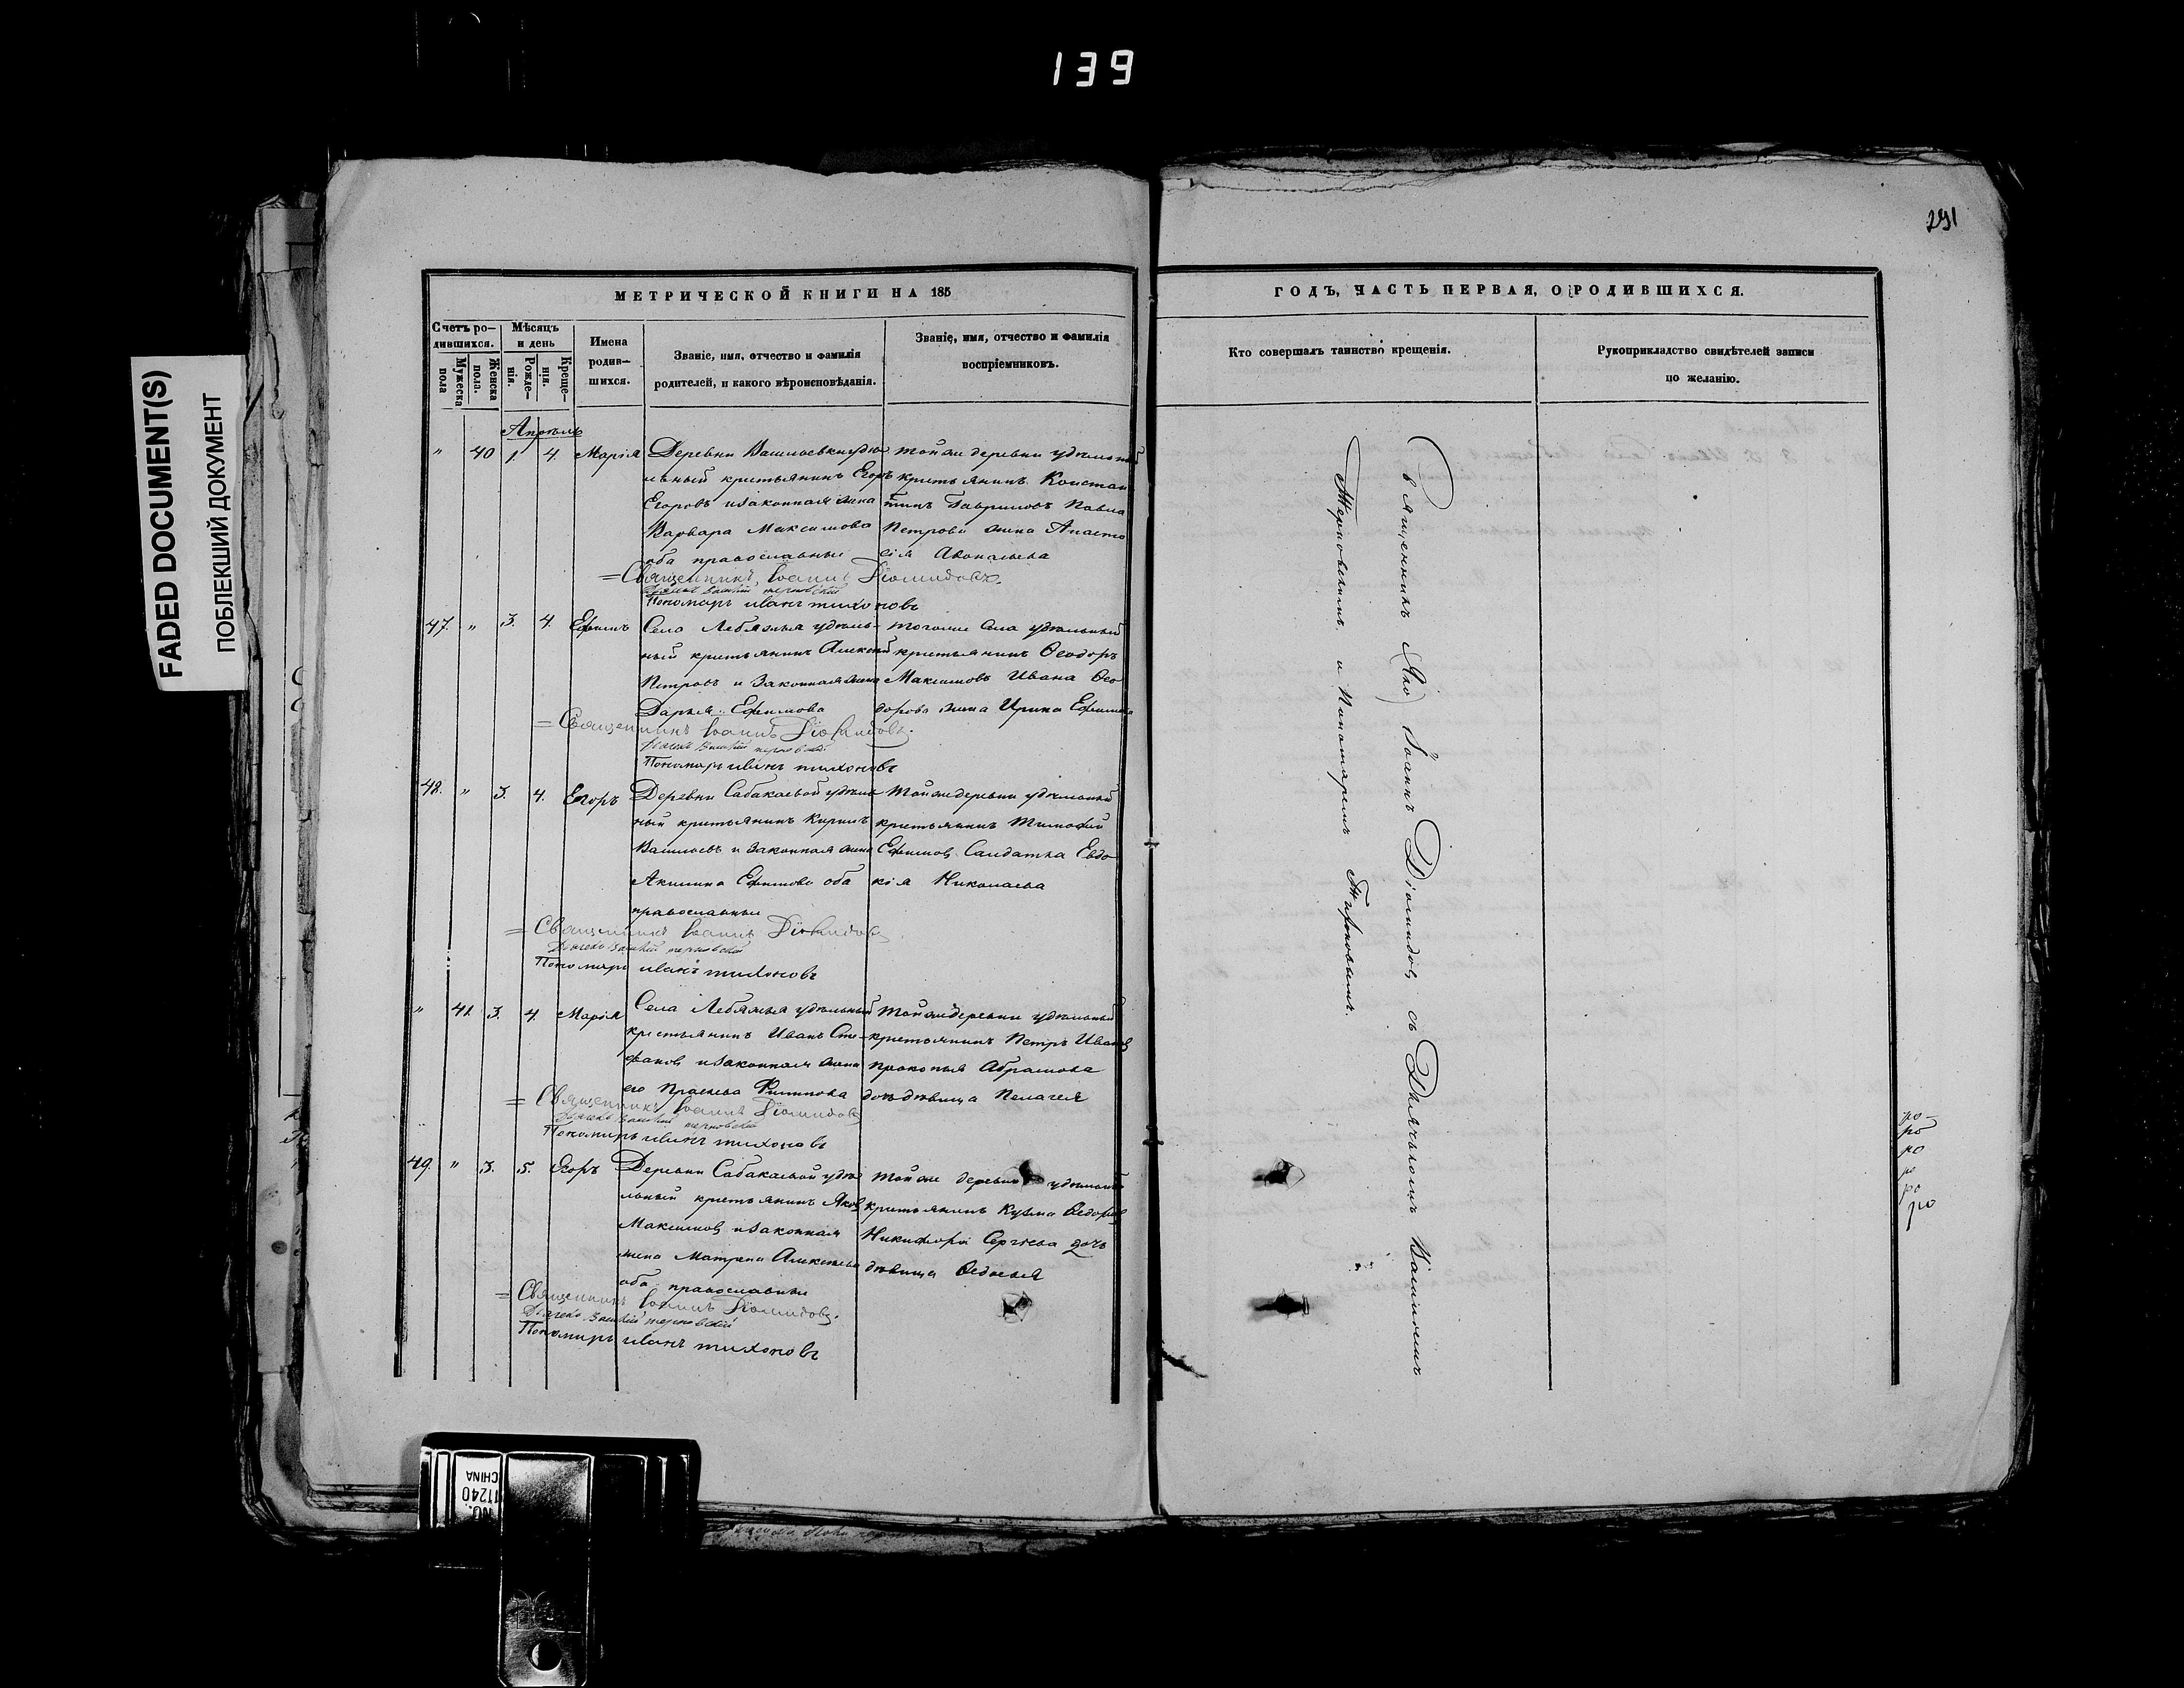 139
291
FADED DOCUMENT(S)
ПОБЛЕКШИЙ ДОКУМЕНТ
МЕТРИЧЕСКОЙ КНИГИ НА 185
Счетъ ро-
дившихся.
Мужеска
пола
Женска
пола.
Мѣсяцъ
и день
Рожде-
нія.
Креще-
нія.
Имена
родив-
шихся.
Званіе, имя, отчество и фамилія
родителей, и какого вѣроисповѣданія.
Званіе, имя, отчество и фамилія
воспріемниковъ.
Апрѣль
" 40 1. 4. Марія
Деревни Васильевки удѣ
льный крестьянинъ Егоръ
Егоровъ и законная жена
Варвара Максимова
оба православные
той же деревни удѣльный
крестьянинъ Констан
тинъ Гавриловъ Павла
Петрова жена Анаста
сія Афонасьева
=Священникъ, Іоаннъ Діомидовъ.
Пономарь иванъ тихоновъ
47. " 3. 4. Ефимъ
Села Лебяжья удѣль-
ный крестьянинъ Алексѣй
Петровъ и Законная жена
Дарья Ефимова
тогоже Села удѣльный
крестьянинъ Ѳеодоръ
Максимовъ Ивана Ѳео
дорова жена Ирина Ефимова
=Священникъ Іоаннъ Діомидовъ.
Пономарь иванъ тихоновъ
48. " 3. 4. Егоръ
Деревни Сабакаевой удѣль
ный крестьянинъ Кирилъ
Васильевъ и Законная жена
Акилина Ефимова оба
православные
той же деревни удѣльный
крестьянинъ Тимофей
Ефимовъ Салдатка Евдо
кія Николаева
=Священникъ Іоаннъ Діомидовъ
Пономарь иванъ тихоновъ
" 41. 3. 4. Марія
Села Лебяжья удѣльный
крестьянинъ Иванъ Сте-
фановъ и законная жена
его Филипова
той же деревни удѣльный
крестьянинъ Петръ Ивановъ
прокопья Абрамова
дочь дѣвица Пелагея
=Священникъ Іоаннъ Діомидовъ
Пономарь иванъ тихоновъ
49. " 3. 5. Егоръ
Деревни Сабакаевой удѣ
льный крестьянинъ Яковъ
Максимовъ и законная
жена Матрена Алексѣева
оба православные
той же деревни удѣльный
крестьянинъ Кузма Ѳедоровъ
Никифора Сергѣева дочь
дѣвица Ѳедосья
=Священникъ Іоаннъ Діомидовъ.
Пономарь иванъ тихоновъ
ГОДЪ, ЧАСТЬ ПЕРВАЯ, О РОДИВШИХСЯ.
Кто совершалъ таинство крещенія.
Рукоприкладство свидѣтелей записи
по желанію.
Священникъ Іоаннъ Діомидовъ съ Дьячькомъ Василіемъ
Терновскимъ и Пономаремъ Тихоновымъ.
ро-
ро
ро
ро
ро
ро
NO.
11240
CHINA